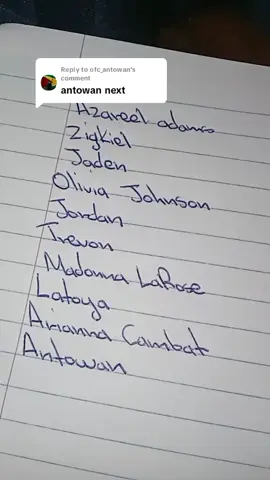 Reply to ofc_antowan's
comment
antowan next
Azareel adams
Zigkiel
Jaden
Olivia Johnson
Jordan
Trevon
Madonna LaRose
Latoya
Arianna Cambat
Antowan